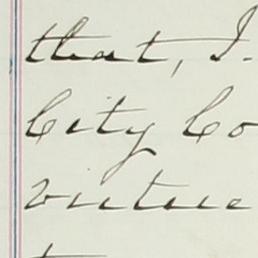 that, I.
City Co
virtue